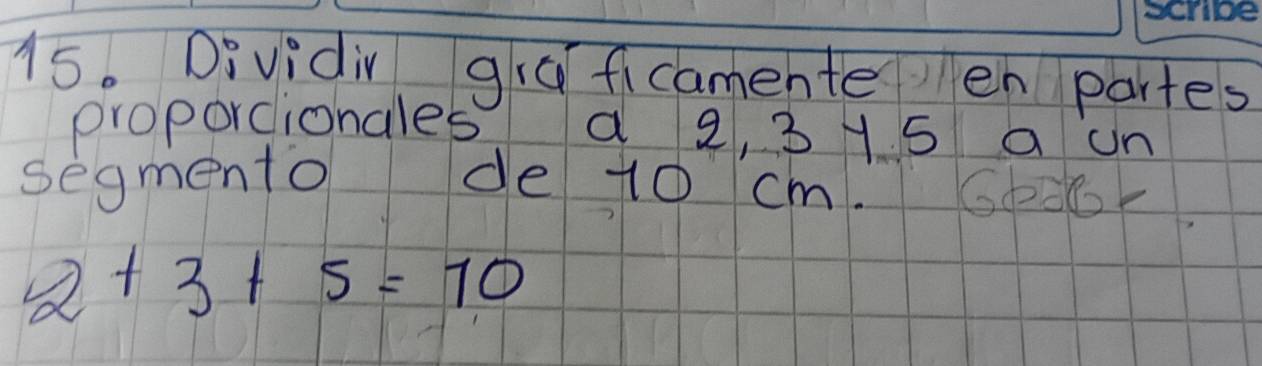 Scribe
15. Dividir gráficamente en partes
proporcionales a 2, 3 y 5 a un
segmento de 10 cm.
2 + 3 + 5 = 10